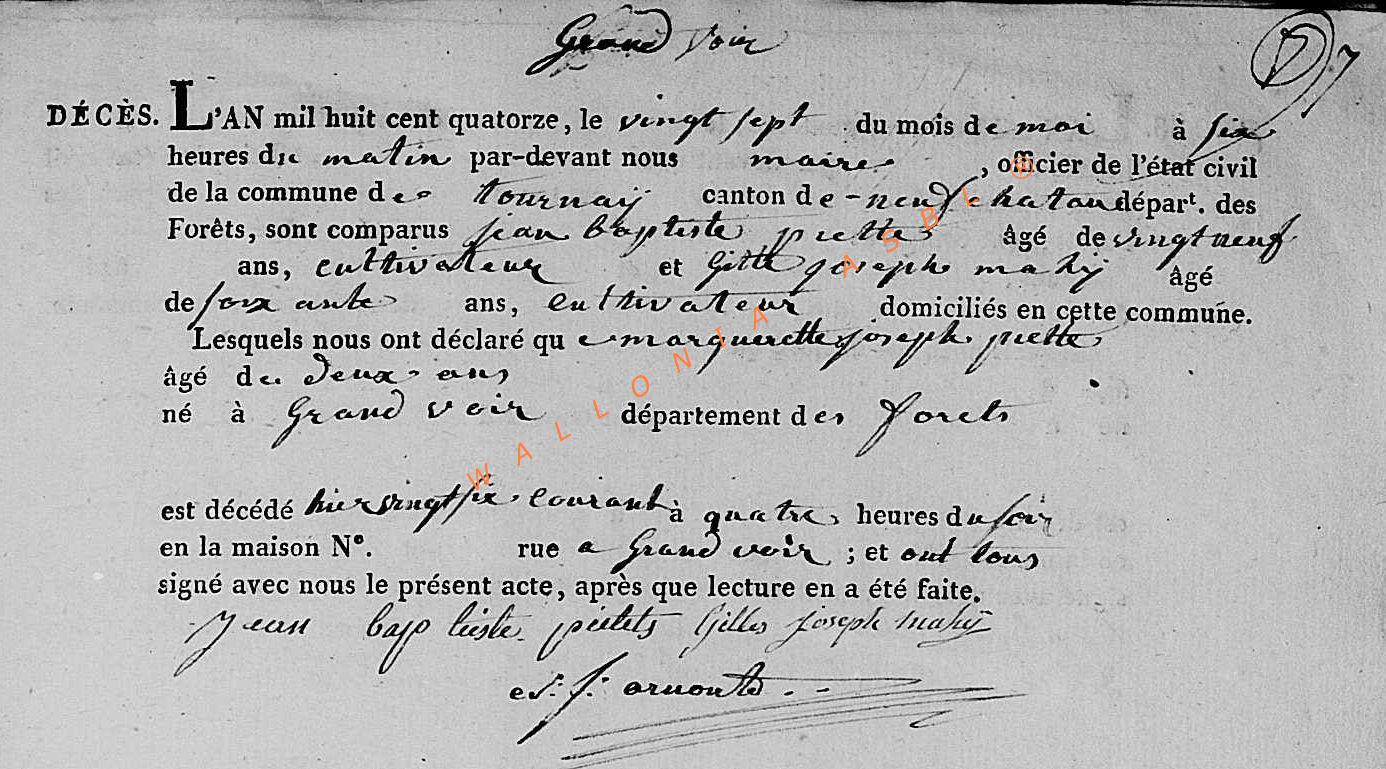 Grand voir
7
DÉCÈS. L'AN mil huit cent quatorze, le vingt sept du mois de mai à six
heures du matin par-devant nous maire, officier de l'état civil
de la commune de tournay canton de neufchatau départ. des
Forêts, sont comparus jean baptiste piette âgé de vingt neuf
ans, cultivateur et Gille joseph mahÿ âgé
de soixante ans, cultivateur domiciliés en cette commune.
Lesquels nous ont déclaré que marguerette joseph piette
âgé de deux ans
né à Grand voir département des forets
est décédé hier vingt six courant à quatre heures du soir
en la maison N°. rue a Grand voir ; et ont tous
signé avec nous le présent acte, après que lecture en a été faite.
jean baptiste Gilles joseph mahÿ
WALLONIA ASBL ©